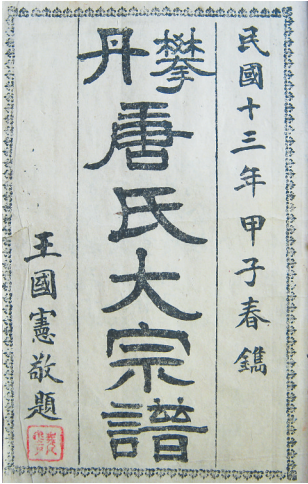 民國十三年甲子春鐫
攀丹唐氏大宗譜
王國憲敬題